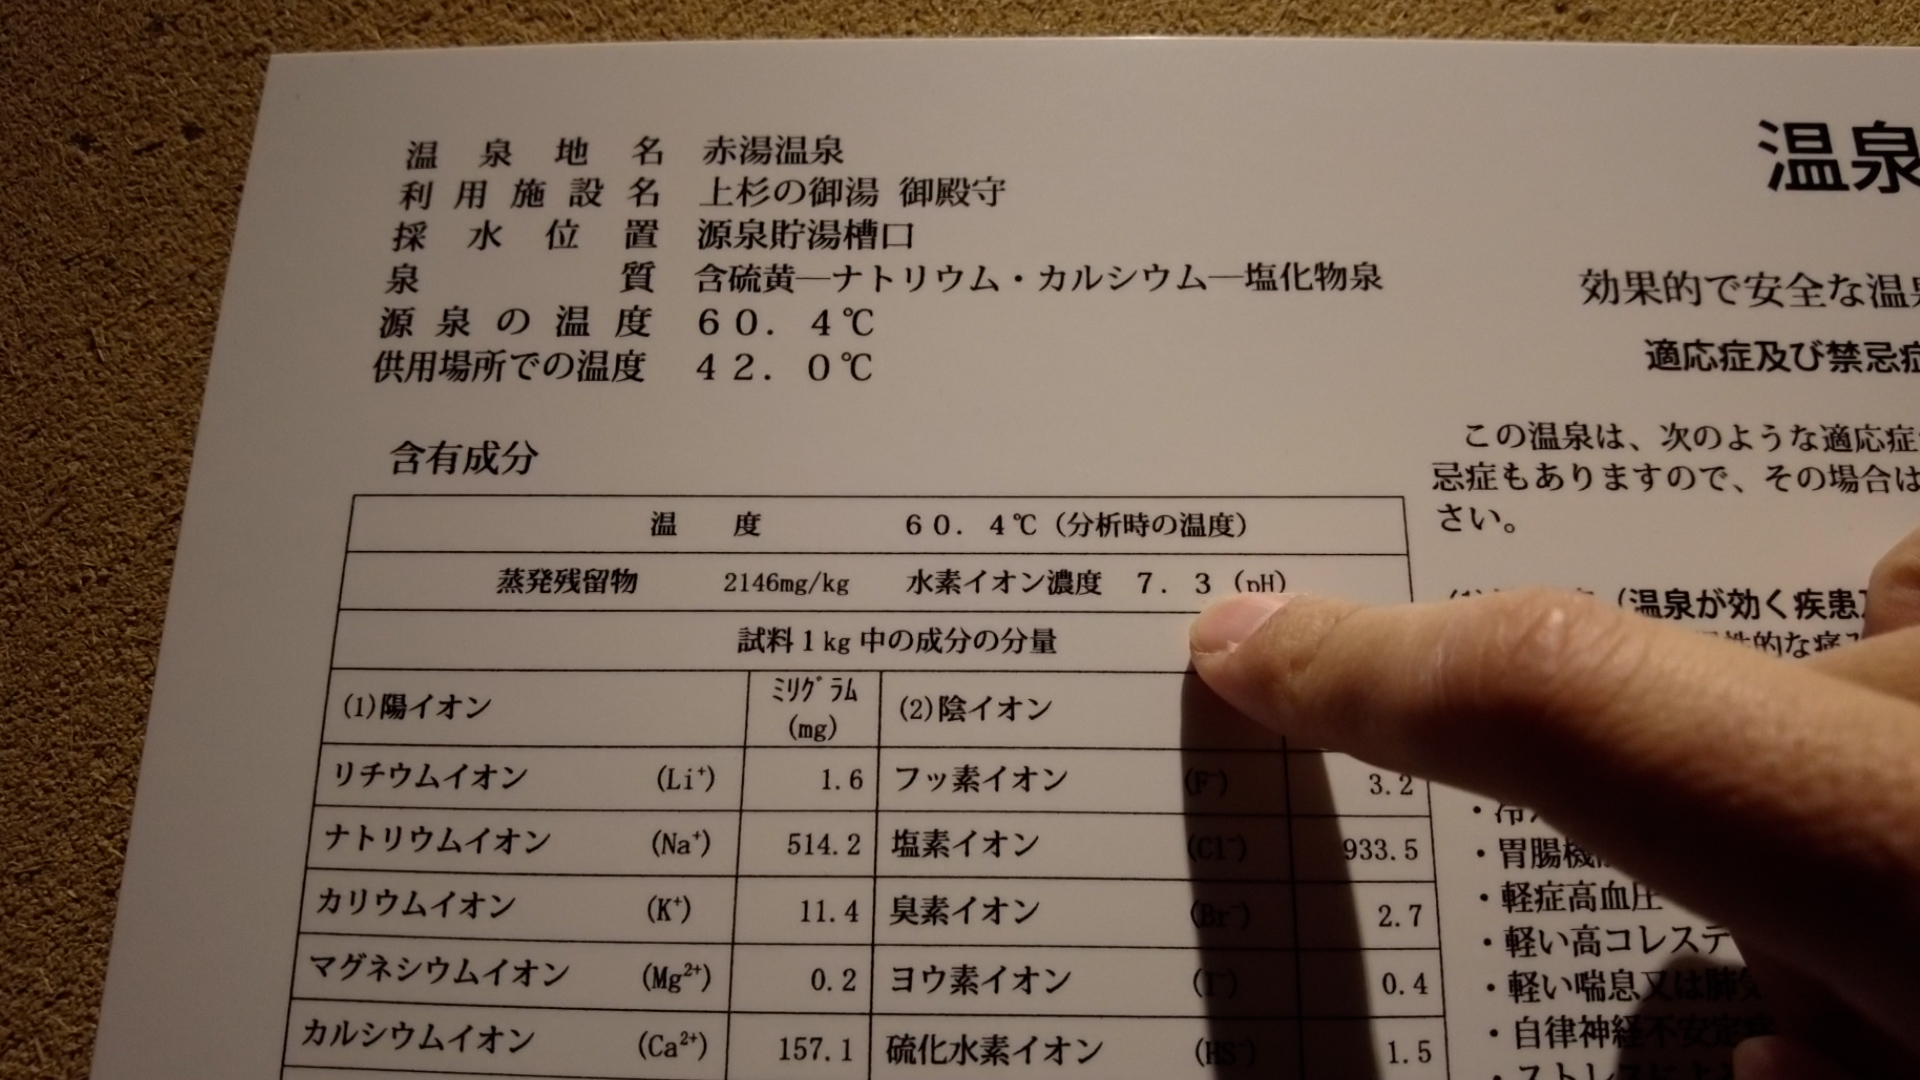 温泉地名 赤湯温泉
利用施設名 上杉の御湯 御殿守
採水位置 源泉貯湯槽口
泉質 含硫黄―ナトリウム・カルシウム―塩化物泉
源泉の温度 60.4℃
供用場所での温度 42.0℃
含有成分
温度 60.4℃(分析時の温度)
蒸発残留物 2146mg/kg 水素イオン濃度 7.3(pH)
試料1kg中の成分の分量
(1)陽イオン ミリグラム(mg) (2)陰イオン
リチウムイオン (Li⁺) 1.6 フッ素イオン (F⁻) 3.2
ナトリウムイオン (Na⁺) 514.2 塩素イオン (Cl⁻) 933.5
カリウムイオン (K⁺) 11.4 臭素イオン (Br⁻) 2.7
マグネシウムイオン (Mg²⁺) 0.2 ヨウ素イオン (I⁻) 0.4
カルシウムイオン (Ca²⁺) 157.1 硫化水素イオン (HS⁻) 1.5
温泉
効果的で安全な温泉
適応症及び禁忌症
この温泉は、次のような適応症
忌症もありますので、その場合は
さい。
(温泉が効く疾患)
性的な痛み
・冷え
・胃腸機
・軽症高血圧
・軽い高コレステ
・軽い喘息又は肺気
・自律神経不安定症
・ストレスによる